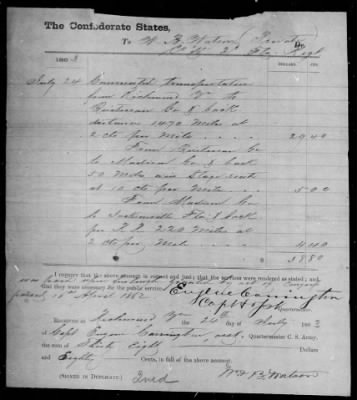 The Confederate States,
To W. B. Watson, Private Dr.
Co. 2d Fla Regt
1863
July 24 Commuted transportation
from Richmond Va to
Quitman Co & back
distance 1470 miles at
2 cts per mile 29 40
From Quitman Co
to Madison Co & back
50 miles via Stage route
at 10 cts per mile 5 00
From Madison Co
to Fla & back
per R.R. 220 miles at
2 cts per mile 4 40
38 80
I certify that the above account is correct and just; that the services were rendered as stated; and
that they were necessary for the public service,
was paid when furlough granted by act of Congress
April 1862
Eugene Carrington
Capt & Quartermaster.
Received at Richmond Va the 24th day of July 1863
Capt Eugene Carrington, Quartermaster C. S. Army,
the sum of Thirty Eight Dollars
and Eighty Cents, in full of the above account.
(Signed in Duplicate.)
W. B. Watson